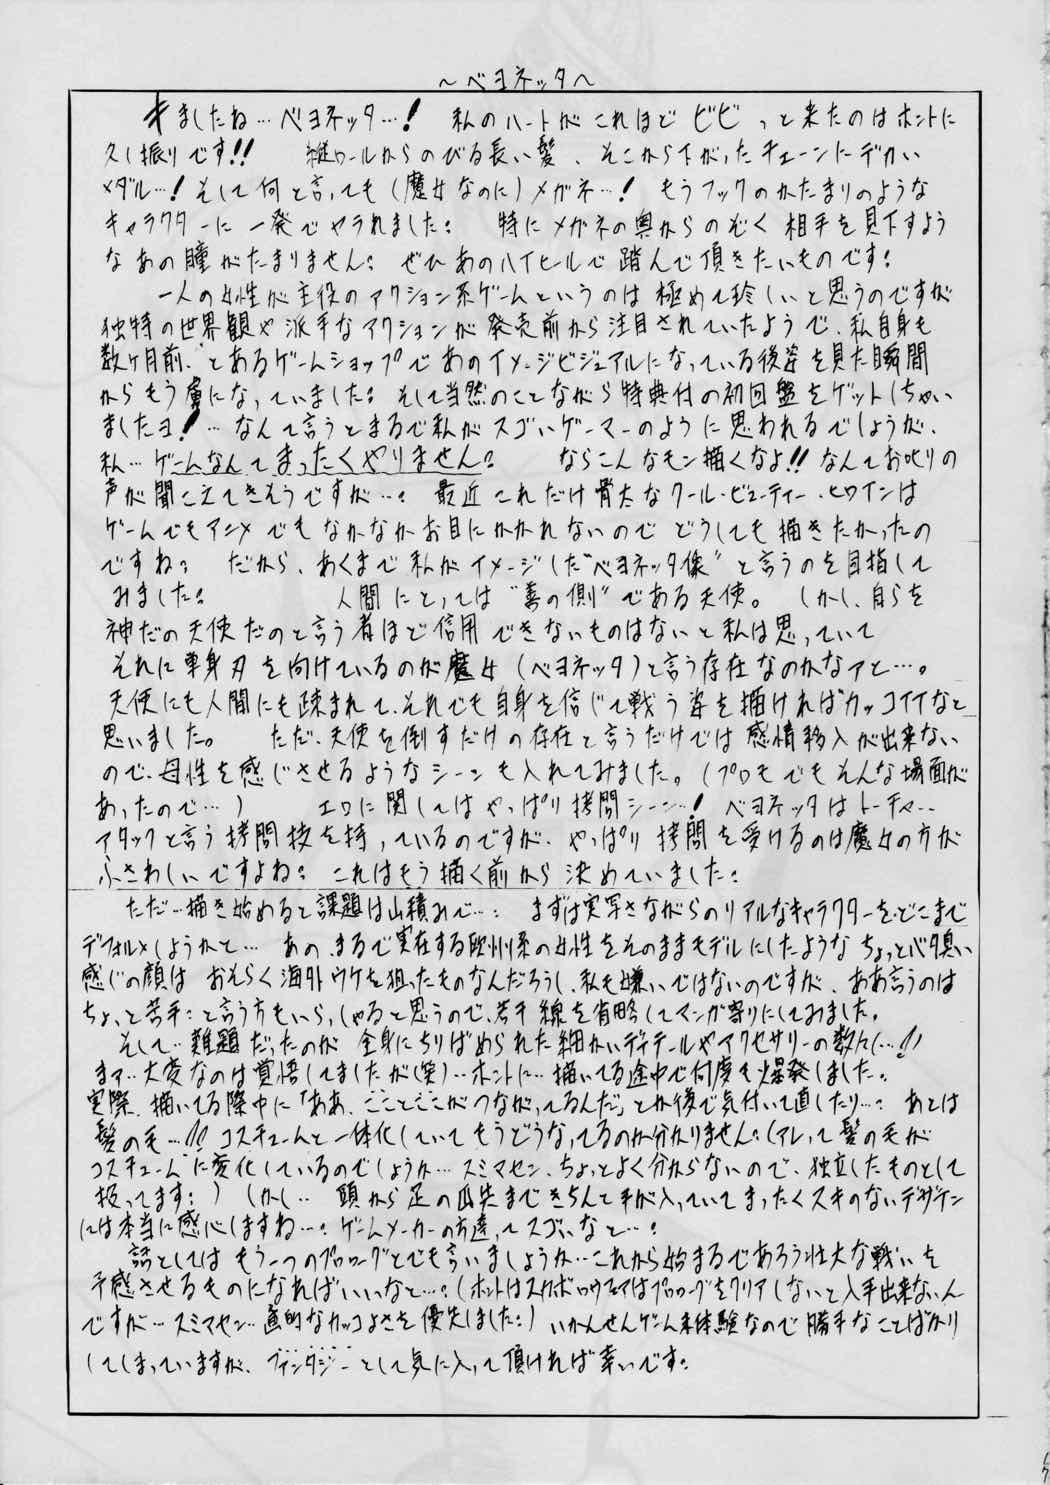 ～ベヨネッタ～
きましたね…ベヨネッタ…! 私のハートがこれほど ビビっと来たのはホントに
久し振りです!! 縦ロールからのびる長い髪、そこから下がったチェーンにデカい
メダル…! そして何と言っても(魔女なのに)メガネ…! もうフックのかたまりのような
キャラクターに一発でヤラれました。 特にメガネの奥からのぞく 相手を見下すよう
なあの瞳がたまりません。 ぜひあのハイヒールで踏んで頂きたいものです。
一人の女性が主役のアクション系ゲームというのは極めて珍しいと思うのですが
独特の世界観や派手なアクションが発売前から注目されていたようで、私自身も
数ヶ月前、とあるゲームショップであのイメージビジュアルになっている後姿を見た瞬間
からもう虜になっていました。 そして当然のことながら特典付の初回盤をゲットしちゃい
ましたヨ! …なんて言うとまるで私がスゴいゲーマーのように思われるでしょうが、
私…ゲームなんてまったくやりません。 ならこんなモン描くなよ!! なんてお叱りの
声が聞こえてきそうですが…。 最近これだけ骨太なクール・ビューティー・ヒロインは
ゲームでもアニメでもなかなかお目にかかれないのでどうしても描きたかったの
ですね。 だから、あくまで私がイメージした“ベヨネッタ像”と言うのを目指して
みました。 人間にとっては“善の側”である天使。 しかし、自らを
神だの天使だのと言う者ほど信用できないものはないと私は思っていて
それに単身刃を向けているのが魔女(ベヨネッタ)と言う存在なのかなァと…。
天使にも人間にも疎まれて、それでも自身を信じて戦う姿を描ければカッコイイなと
思いました。 ただ、天使を倒すだけの存在と言うだけでは感情移入が出来ない
ので、母性を感じさせるようなシーンも入れてみました。(プロモでもそんな場面が
あったので…) エロに関してはやっぱり拷問シーン…! ベヨネッタはトーチャー
アタックと言う拷問技を持っているのですが、やっぱり拷問を受けるのは魔女の方が
ふさわしいですよね。 これはもう描く前から決めていました。
ただ…描き始めると課題は山積みで…。 まずは実写さながらのリアルなキャラクターを、どこまで
デフォルメしようかと… あの、まるで実在する欧州系の女性をそのままモデルにしたようなちょっとバタ臭い
感じの顔は おそらく海外ウケを狙ったものなんだろうし、私も嫌いではないのですが、ああ言うのは
ちょっと苦手…と言う方もいらっしゃると思うので、若干線を省略してマンガ寄りにしてみました。
そして…難題だったのが 全身にちりばめられた細かいディテールやアクセサリーの数々…!!
まァ…大変なのは覚悟してましたが(笑)…ホントに…描いてる途中で何度も爆発しました。
実際、描いてる際中に「ああ、こことここがつながってるんだ」とか後で気付いて直したり…。 あとは
髪の毛…!! コスチュームと一体化していてもうどうなってるのか分かりません。(アレって髪の毛が
コスチュームに変化しているのでしょうか…スミマセン、ちょっとよく分からないので、独立したものとして
扱ってます。) しかし… 頭から足の爪先まできちんと手が入っていてまったくスキのないデザイン
には本当に感心しますね…。ゲームメーカーの方達ってスゴいなと…。
話としてはもう一つのプロローグとでも言いましょうか…これから始まるであろう壮大な戦いを
予感させるものになればいいなと…。(ホントはスカボロウフェアはプロローグをクリアしないと入手出来ないん
ですが…スミマセン…画的なカッコよさを優先しました。) いかんせんゲーム未体験なので勝手なことばかり
してしまっていますが、ファンタジーとして気に入って頂ければ幸いです。